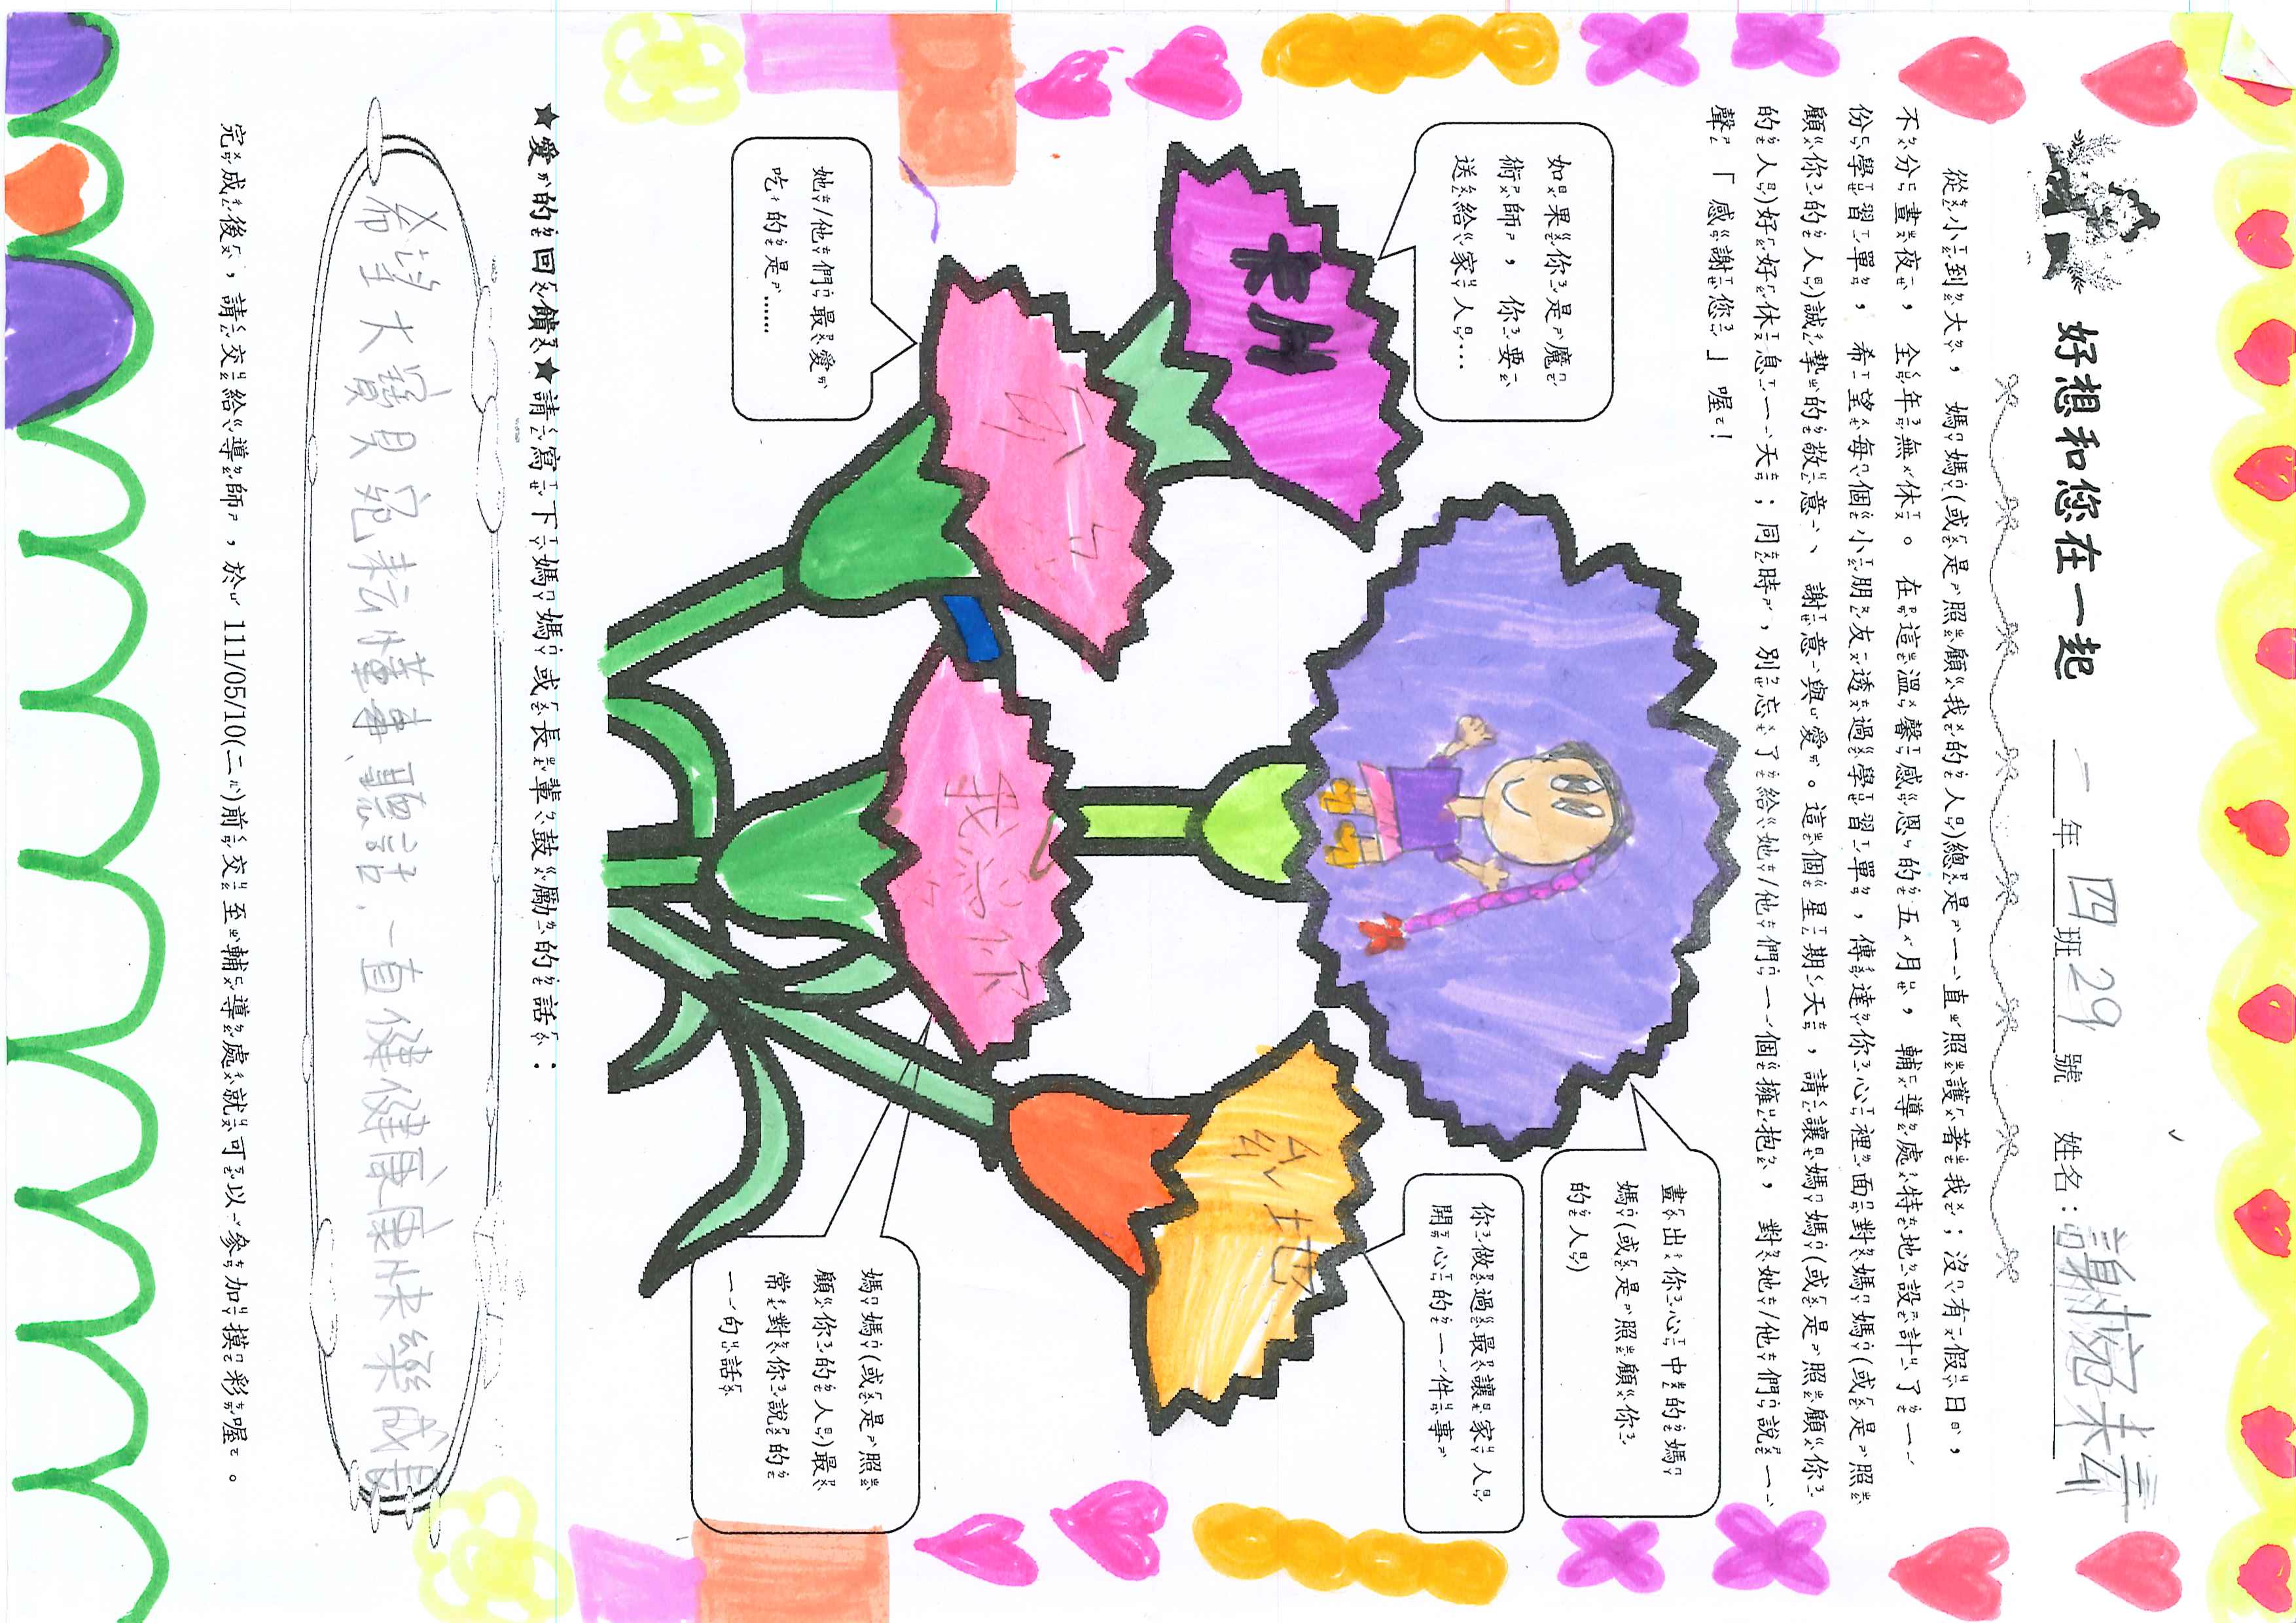 好想和您在一起 一年四班29號 姓名：謝宛耘
從小到大，媽媽(或是照顧我的人)總是一直照護著我；沒有假日，
不分晝夜，全年無休。在這溫馨感恩的五月，輔導處特地設計了一
份學習單，希望每個小朋友透過學習單，傳達你心裡面對媽媽(或是照
顧你的人)誠摯的敬意、謝意與愛。這個星期天，請讓媽媽(或是照顧你
的人)好好休息一天；同時，別忘了給她/他們一個擁抱，對她/他們說一
聲「感謝您」喔！
如果你是魔
術師，你要
送給家人…
畫出你心中的媽
媽(或是照顧你
的人)
你做過最讓家人
開心的一件事
她/他們最愛
吃的是……
媽媽(或是照
顧你的人)最
常對你說的
一句話
我
你
★愛的回饋★請寫下媽媽或長輩鼓勵的話：
希望大寶貝宛耘懂事、聽話，一直健健康康快樂成長
完成後，請交給導師，於 111/05/10(二)前交至輔導處就可以參加摸彩喔。